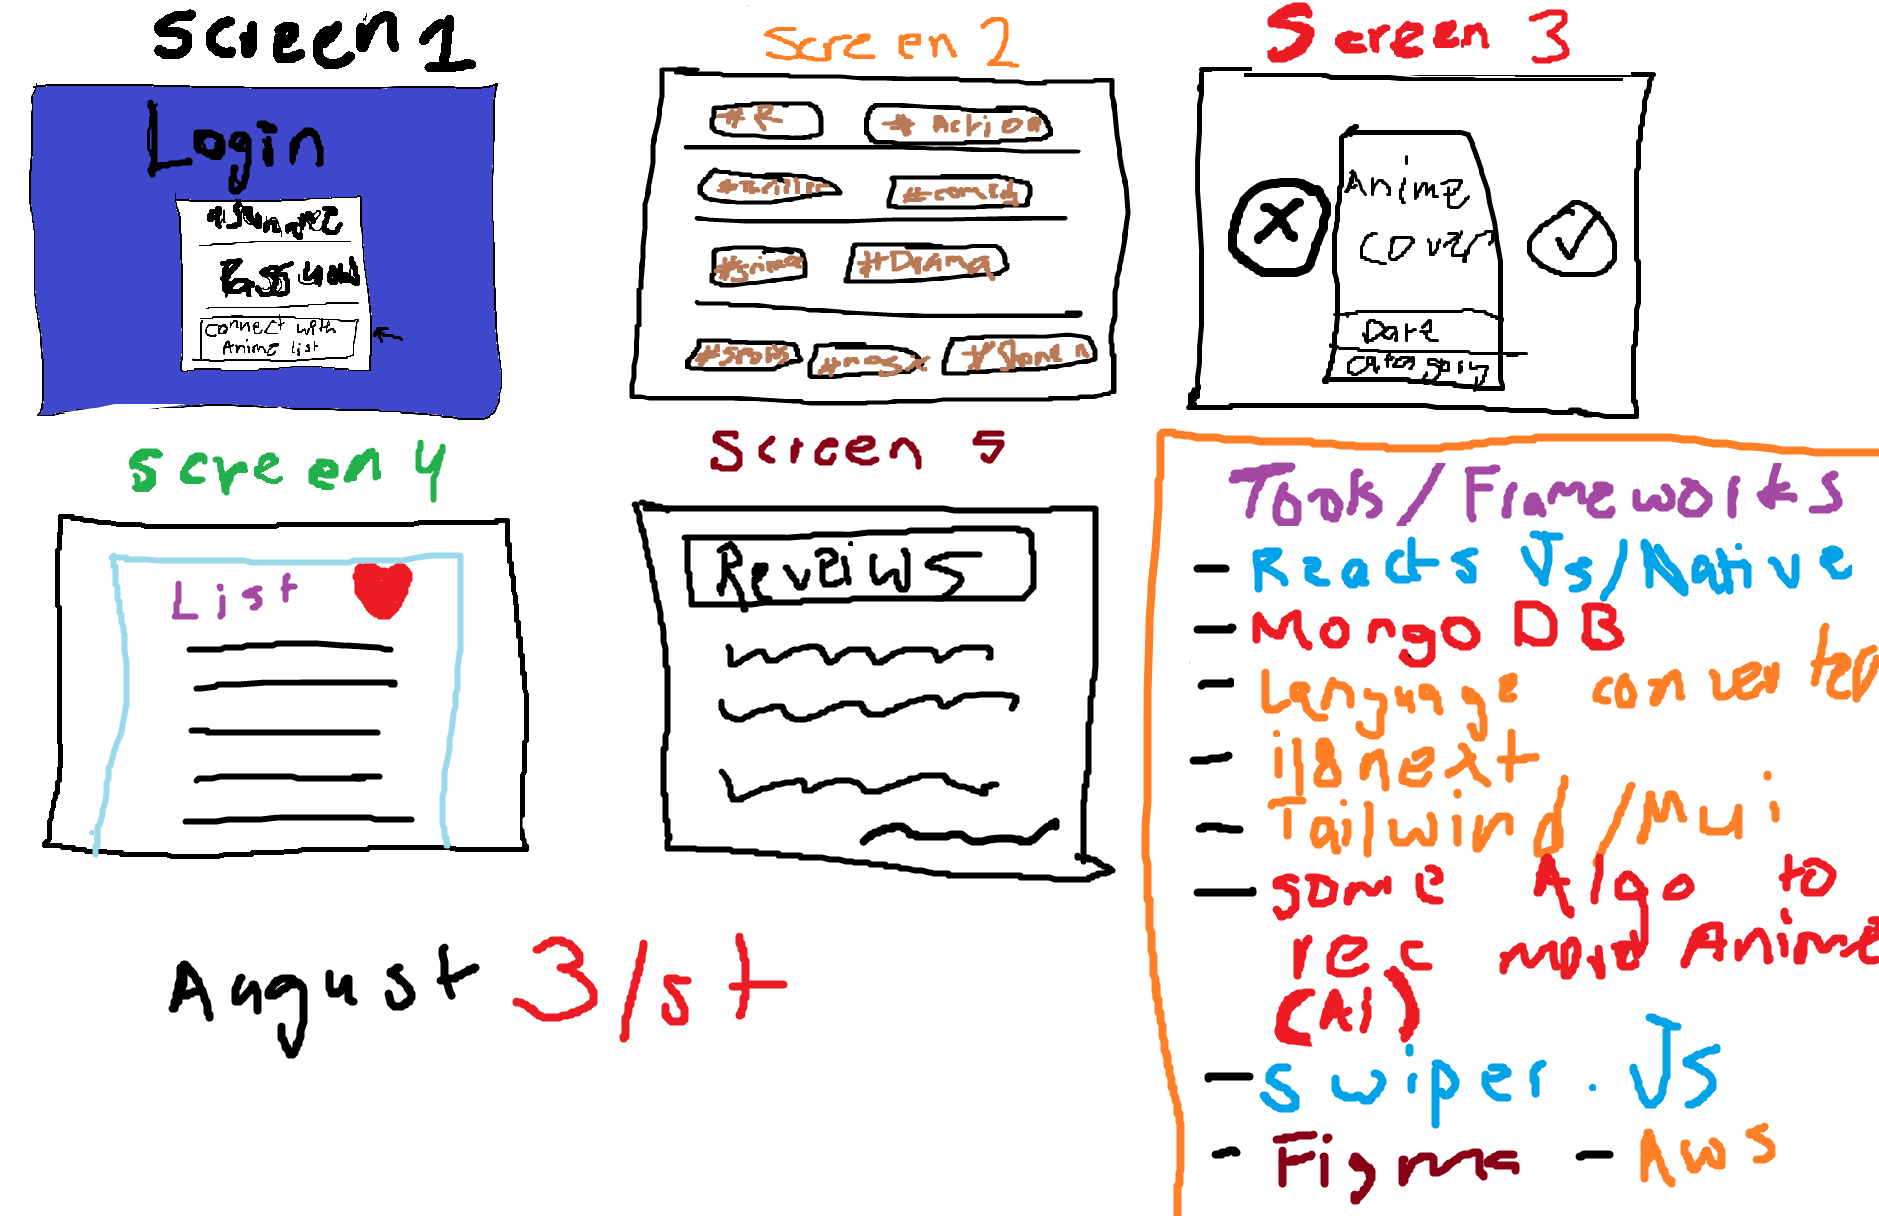 Screen 1
Login
Connect with
Anime list
Screen 2
#R
#Action
#Thriller
#Drama
#Shonen
Screen 3
X
Anime
Cover
Date
Screen 4
List
Screen 5
Reveiws
August 31st
Tools/Frameworks
- Reacts Js/Native
- Mongo DB
- Language converter
- i18next
- Tailwind/Mui
- some Algo to
rec more Anime
(AI)
- Swiper.Js
- Figma - Aws